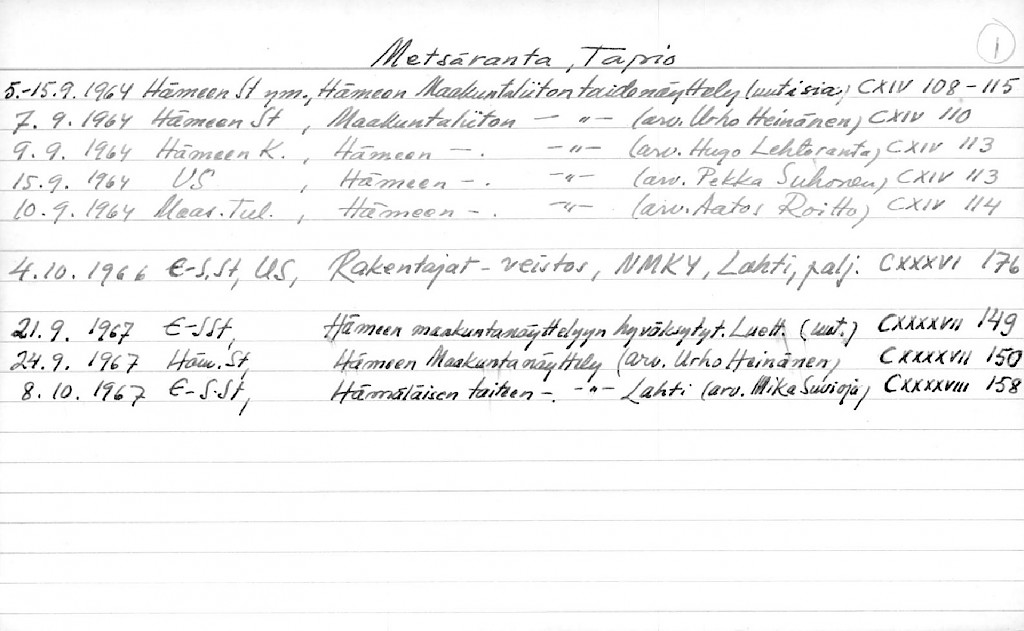 1
Metsäranta, Tapio
5.-15.9.1964 Hämeen St ym., Hämeen Maakuntaliiton taidenäyttely (uutisia) CXIV 108-115
7.9.1964 Hämeen St , Maakuntaliiton — " — (arv. Urho Heinänen) CXIV 110
9.9.1964 Hämeen K. , Hämeen —. — " — (arv. Hugo Lehtoranta) CXIV 113
15.9.1964 US , Hämeen —. — " — (arv. Pekka Suhonen) CXIV 113
10.9.1964 Maas. Tul. , Hämeen —. — " — (arv. Aatos Roitto) CXIV 114
4.10.1966 E-S.St, US, Rakentajat - veistos, NMKY, Lahti, palj. CXXXVI 176
21.9.1967 E-SSt, Hämeen maakuntanäyttelyyn hyväksytyt. Luett. (uut.) CXXXXVII 149
24.9.1967 Häm. St, Hämeen Maakuntanäyttely (arv. Urho Heinänen) CXXXXVII 150
8.10.1967 E-S.St, Hämäläisen taiteen —. — " — Lahti (arv. Mika Suvioja) CXXXXVIII 158